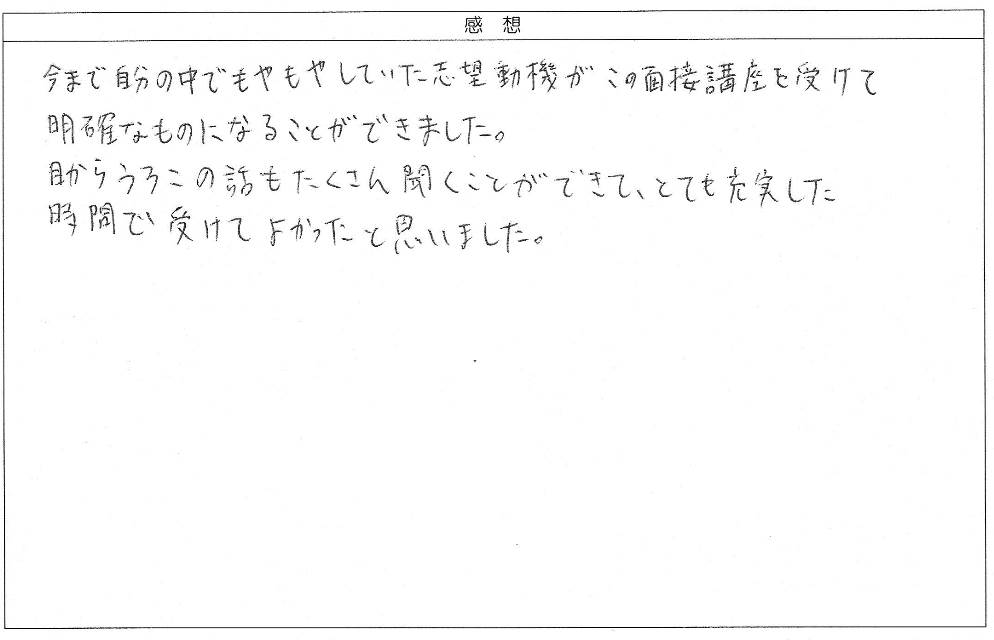 感想
今まで自分の中でもやもやしていた志望動機がこの面接講座を受けて
明確なものになることができました。
目からうろこの話もたくさん聞くことができて、とても充実した
時間で受けてよかったと思いました。